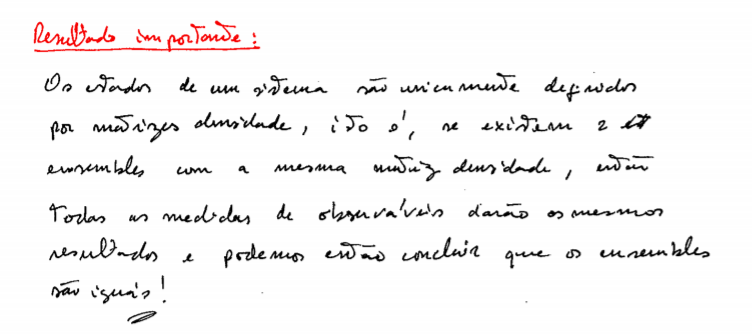 Resultado importante:
Os estados de um sistema são unicamente definidos
por matrizes densidade, isto é, se existem 2
ensembles com a mesma matriz densidade, então
todas as medidas de observáveis darão os mesmos
resultados e podemos então concluir que os ensembles
são iguais!